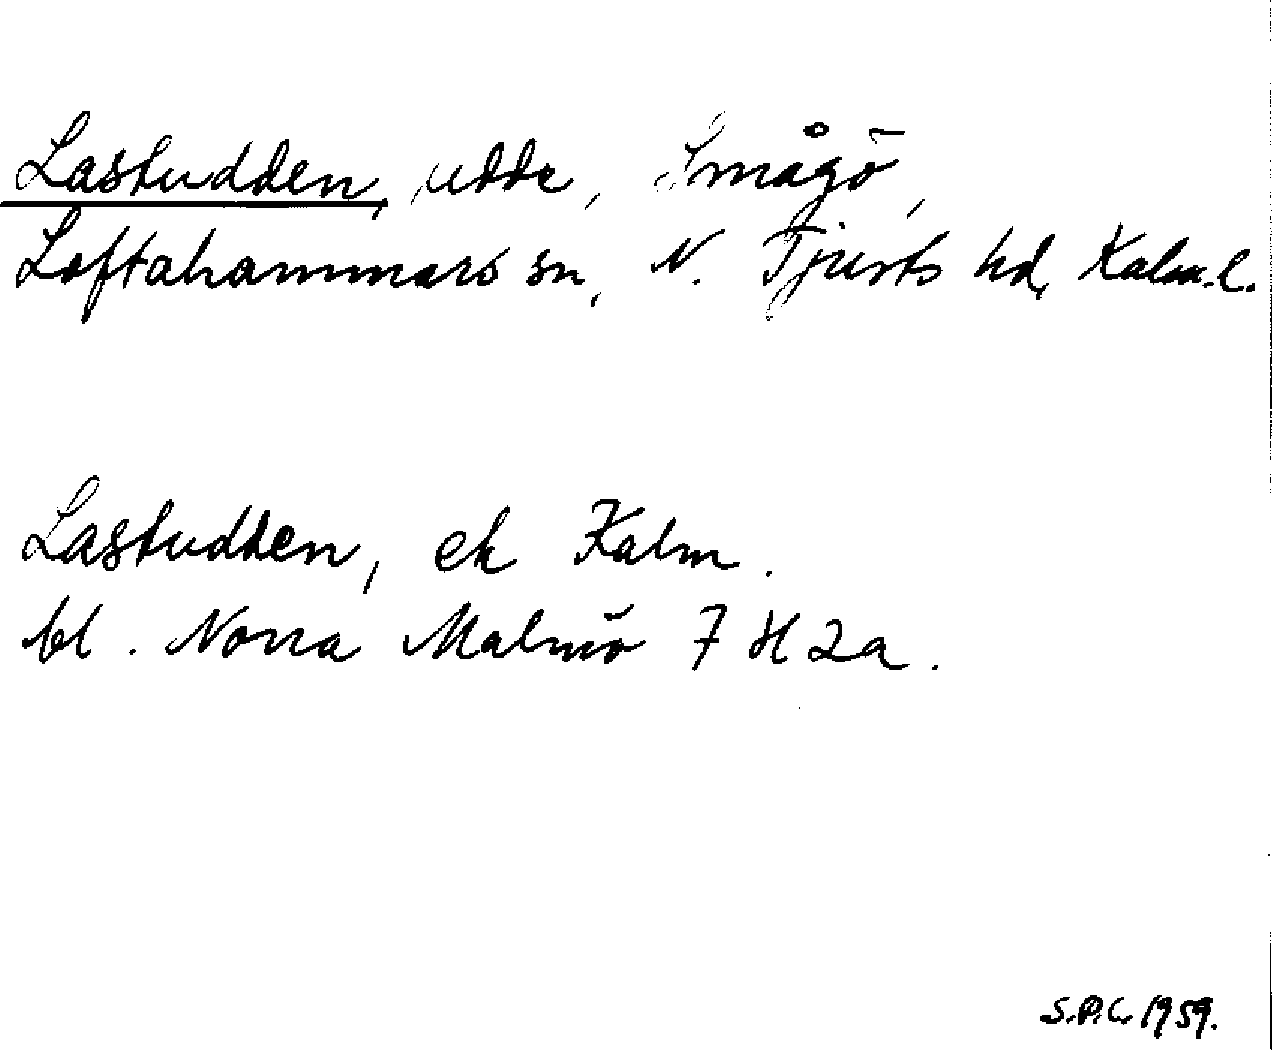 Lastudden, udde, Smågö,
Loftahammars sn, N. Tjusts hd, Kalm.l.
Lastudden, ek Kalm.
bl. Norra Malmö 7 H 2a.
S.P.C. 1959.